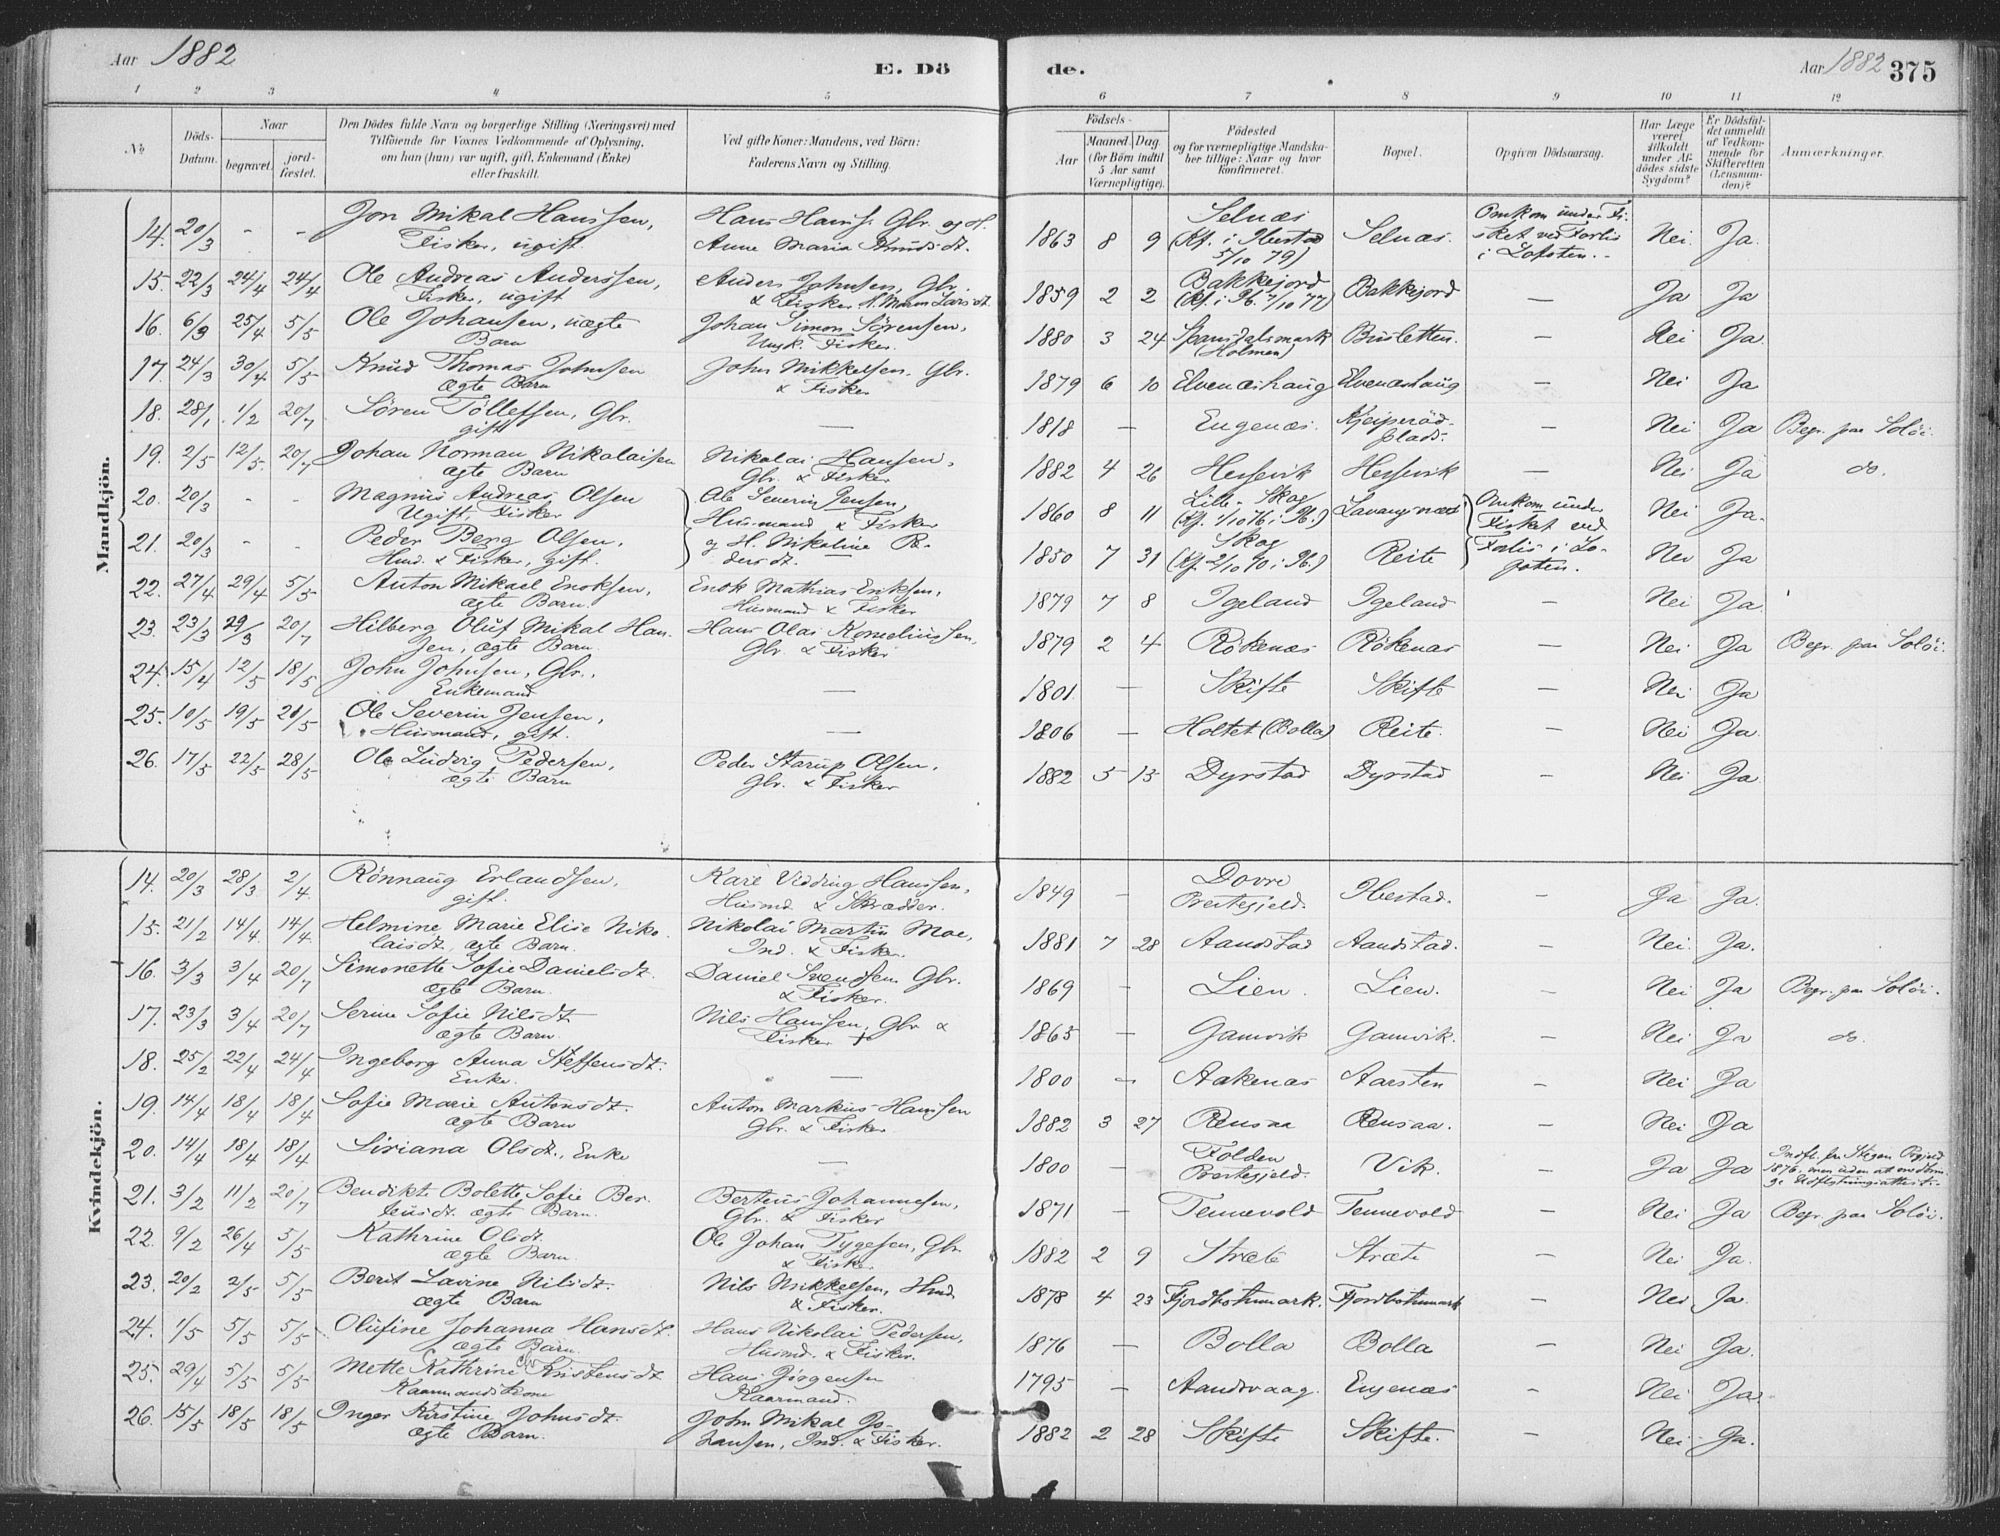 Aar 1882
E. Dö
de.
Aar 1882 375
1 2 3 4 5 6 7 8 9 10 11 12
No
Döds-Datum.
Naar
begravet.
jord-fæstet.
Den Dödes fulde Navn og borgerlige Stilling (Næringsvei) med
Tilföiende for Voxnes Vedkommende af Oplysning,
om han (hun) var ugift, gift, Enkemand (Enke)
eller fraskilt.
Ved gifte Koner: Mandens, ved Börn:
Faderens Navn og Stilling.
Födsels-
Aar
Maaned. Dag.
(for Börn indtil
5 Aar samt
Værnepligtige).
Födested
og for værnepligtige Mandska-
ber tillige: Naar og hvor
konfirmeret.
Bopæl.
Opgiven Dödsaarsag.
Har Læge
været
tilkaldt
under Af-
dödes sidste
Sygdom?
Er Dödsfal-
det anmeldt
af Vedkom-
mende for
Skifteretten
(Lensman-
den)?
Anmærkninger.
Mandkjön.
14. 20/3 - - Jon Mikal Hanssen, Fisker, ugift. Hans Hanss. Gbr. og H. Anne Maria 1863 8 9 Selnæs (Kf. i Ibestad 5/10 79) Selnæs. Omkom under Fisket ved Forlis i Lofoten. Nei Ja.
15. 22/3 24/4 24/4 Ole Andreas Anderssen, Fisker, ugift Anders Johnsen, Gbr. & Fisker 1859 2 2 Bakkejord (Kf. i Ib. 7/10 77) Bakkejord — Ja Ja
16. 6/3 25/4 5/5 Ole Johansen, uægte Barn Johan Simon Sörensen, Ungk. Fisker. 1880 3 24 Spansdalsmark (Holmen) — Nei Ja.
17. 24/3 30/4 5/5 Knud Thomas Johnsen ægte Barn John Mikkelsen, Gbr. & Fisker 1879 6 10 Elvenæshaug Elvenæshaug — Nei Ja
18. 28/1 1/2 20/7 Sören Tollefsen, Gbr. gift — 1818 — Engenæs. Plads. — Nei Ja Begr. paa Solöi.
19. 2/5 12/5 20/7 Johan Norman Nikolaisen ægte Barn Nikolai Hansen, Gbr. & Fisker 1882 4 26 Hessevik Hessevik — Nei Ja do.
20. 20/3 - - Magnus Andreas Olsen Ugift, Fisker Ole Severin Jensen, Husmand & Fisker 1860 8 11 Lille-Skog (Kf. 1/10 76 i Ib.) Lavangsnæs Omkom under Fisket ved Nei Ja.
21. 20/3 - - Peder Berg Olsen, Hmd. & Fisker, gift. og H. Nikoline Pedersdt. 1850 7 31 Skog (Kf. 2/10 70 i Ib.) Reite Forlis i Lofoten. Nei Ja
22. 27/4 29/4 5/5 Anton Mikael Enoksen, ægte Barn. Enok Mathias Eriksen, Husmand & Fisker 1879 7 8 Igeland Igeland — Nei Ja.
23. 23/3 29/3 20/7 Hilberg Oluf Mikal Hansen, ægte Barn. Hans Olai Korneliussen, Gbr. & Fisker 1879 2 4 Rökenæs Rökenæs — Nei Ja Begr. paa Solöi.
24. 15/4 12/5 18/5 John Johnsen, Gbr., Enkemand — 1801. — Skifte Skifte — Nei Ja
25. 10/5 19/5 21/5 Ole Severin Jensen, Husmand, gift. — 1806 — Holtet (Bolla) Reite. — Nei Ja.
26. 17/5 22/5 28/5 Ole Ludvig Pedersen, ægte Barn Peder Starup Olsen, Gbr. & Fisker 1882 5 15 Dyrstad Dyrstad — Nei Ja.
Kvindekjön.
14. 20/3 28/3 2/4 Rönnaug Erlandsen, gift. Kare Vidding Hanssen, Husmd. & Skrædder. 1849 — Dovre Prestegjeld. Ibestad. — Ja Ja.
15. 21/2 14/4 14/4 Helmine Marie Elise Nikolaisdt. ægte Barn. Nikolai Martin Moe, Ind. & Fisker. 1881 7 28 Aandstad Aandstad. — Nei. Ja.
16. 3/3 3/4 20/7 Simonette Sofie Danielsdt. ægte Barn. Daniel Svendsen Gbr. & Fisker. 1869 — Lien. Lien. — Nei Ja Begr. paa Solöi.
17. 23/3 3/4 20/7 Serine Sofie Nilsdt ægte Barn Nils Hanssen, Gbr & Fisker 1865 — Gamvik Gamvik. — Nei Ja do.
18. 25/2 22/4 24/4 Ingeborg Anna Steffensdt. Enke. — 1800 — Aakenæs Aarsten — Nei Ja
19. 14/4 18/4 18/4 Sofie Marie Antonsdt. ægte Barn Anton Markus Hanssen Gbr. & Fisker 1882 3 27 Rensaa Rensaa. — Nei Ja
20. 14/4 18/4 18/4 Siriana Olsdt., Enke — 1800 — Folden Prestegjeld. Vik. — Ja Ja Indfl. fra Stegen Prgjeld 1876, men uden at medbringe Udflytningsattest.
21. 3/2 11/2 20/7 Bendikte Bolette Sofie Berteusdt. ægte Barn. Berteus Johannesen, Gbr. & Fisker 1871 — Tennevold Tennevold — Nei Ja Begr. paa Solöi.
22. 9/2 26/4 5/5 Kathrine Olsdt. ægte Barn. Ole Johan Tygesen, Gbr. & Fisker. 1882 2 9 Stræte Stræte — Nei Ja.
23. 20/2 2/5 5/5 Berit Lavine Nilsdt. ægte Barn Nils Mikkelsen, Hmd. & Fisker. 1878 4 23 Fjordbotnmark. Fjordbotnmark — Nei Ja.
24. 1/5 5/5 5/5 Olufine Johanna Hansdt. ægte Barn. Hans Nikolai Pedersen, Husmd. & Fisker. 1876 — Bolla Bolla — Nei Ja.
25. 29/4 5/5 5/5 Mette Kathrine Kristensdt Kaarmandskone Hans Jörgensen Kaarmand. 1795 — Aandsvaag. Engenæs — Nei Ja.
26. 15/5 18/5 18/5 Inger Kirstine Johnsdt. ægte Barn. John Mikal Johansen, Ind. & Fisker. 1882 2 28 Skifte Skifte. — Nei Ja.